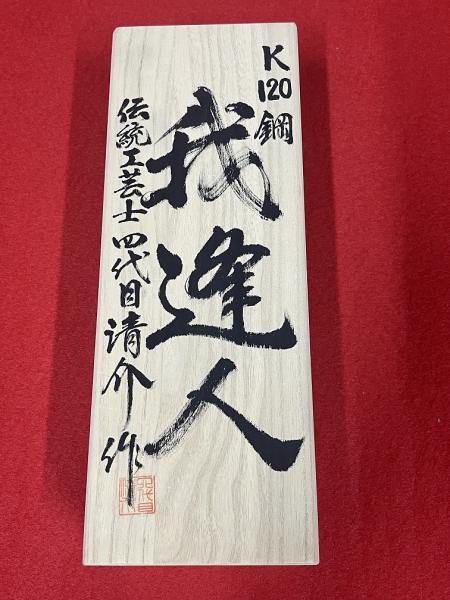 K120鋼
我逢人
伝統工芸士四代目清介作